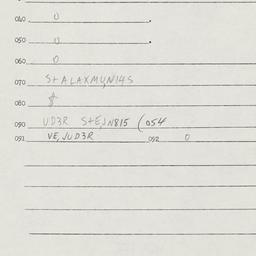 040 0 .
050 0 .
060 0
070 StALAXMYN14S
080 8
090 UD3R StEJN815 (054
091 VE,JUD3R 092 0